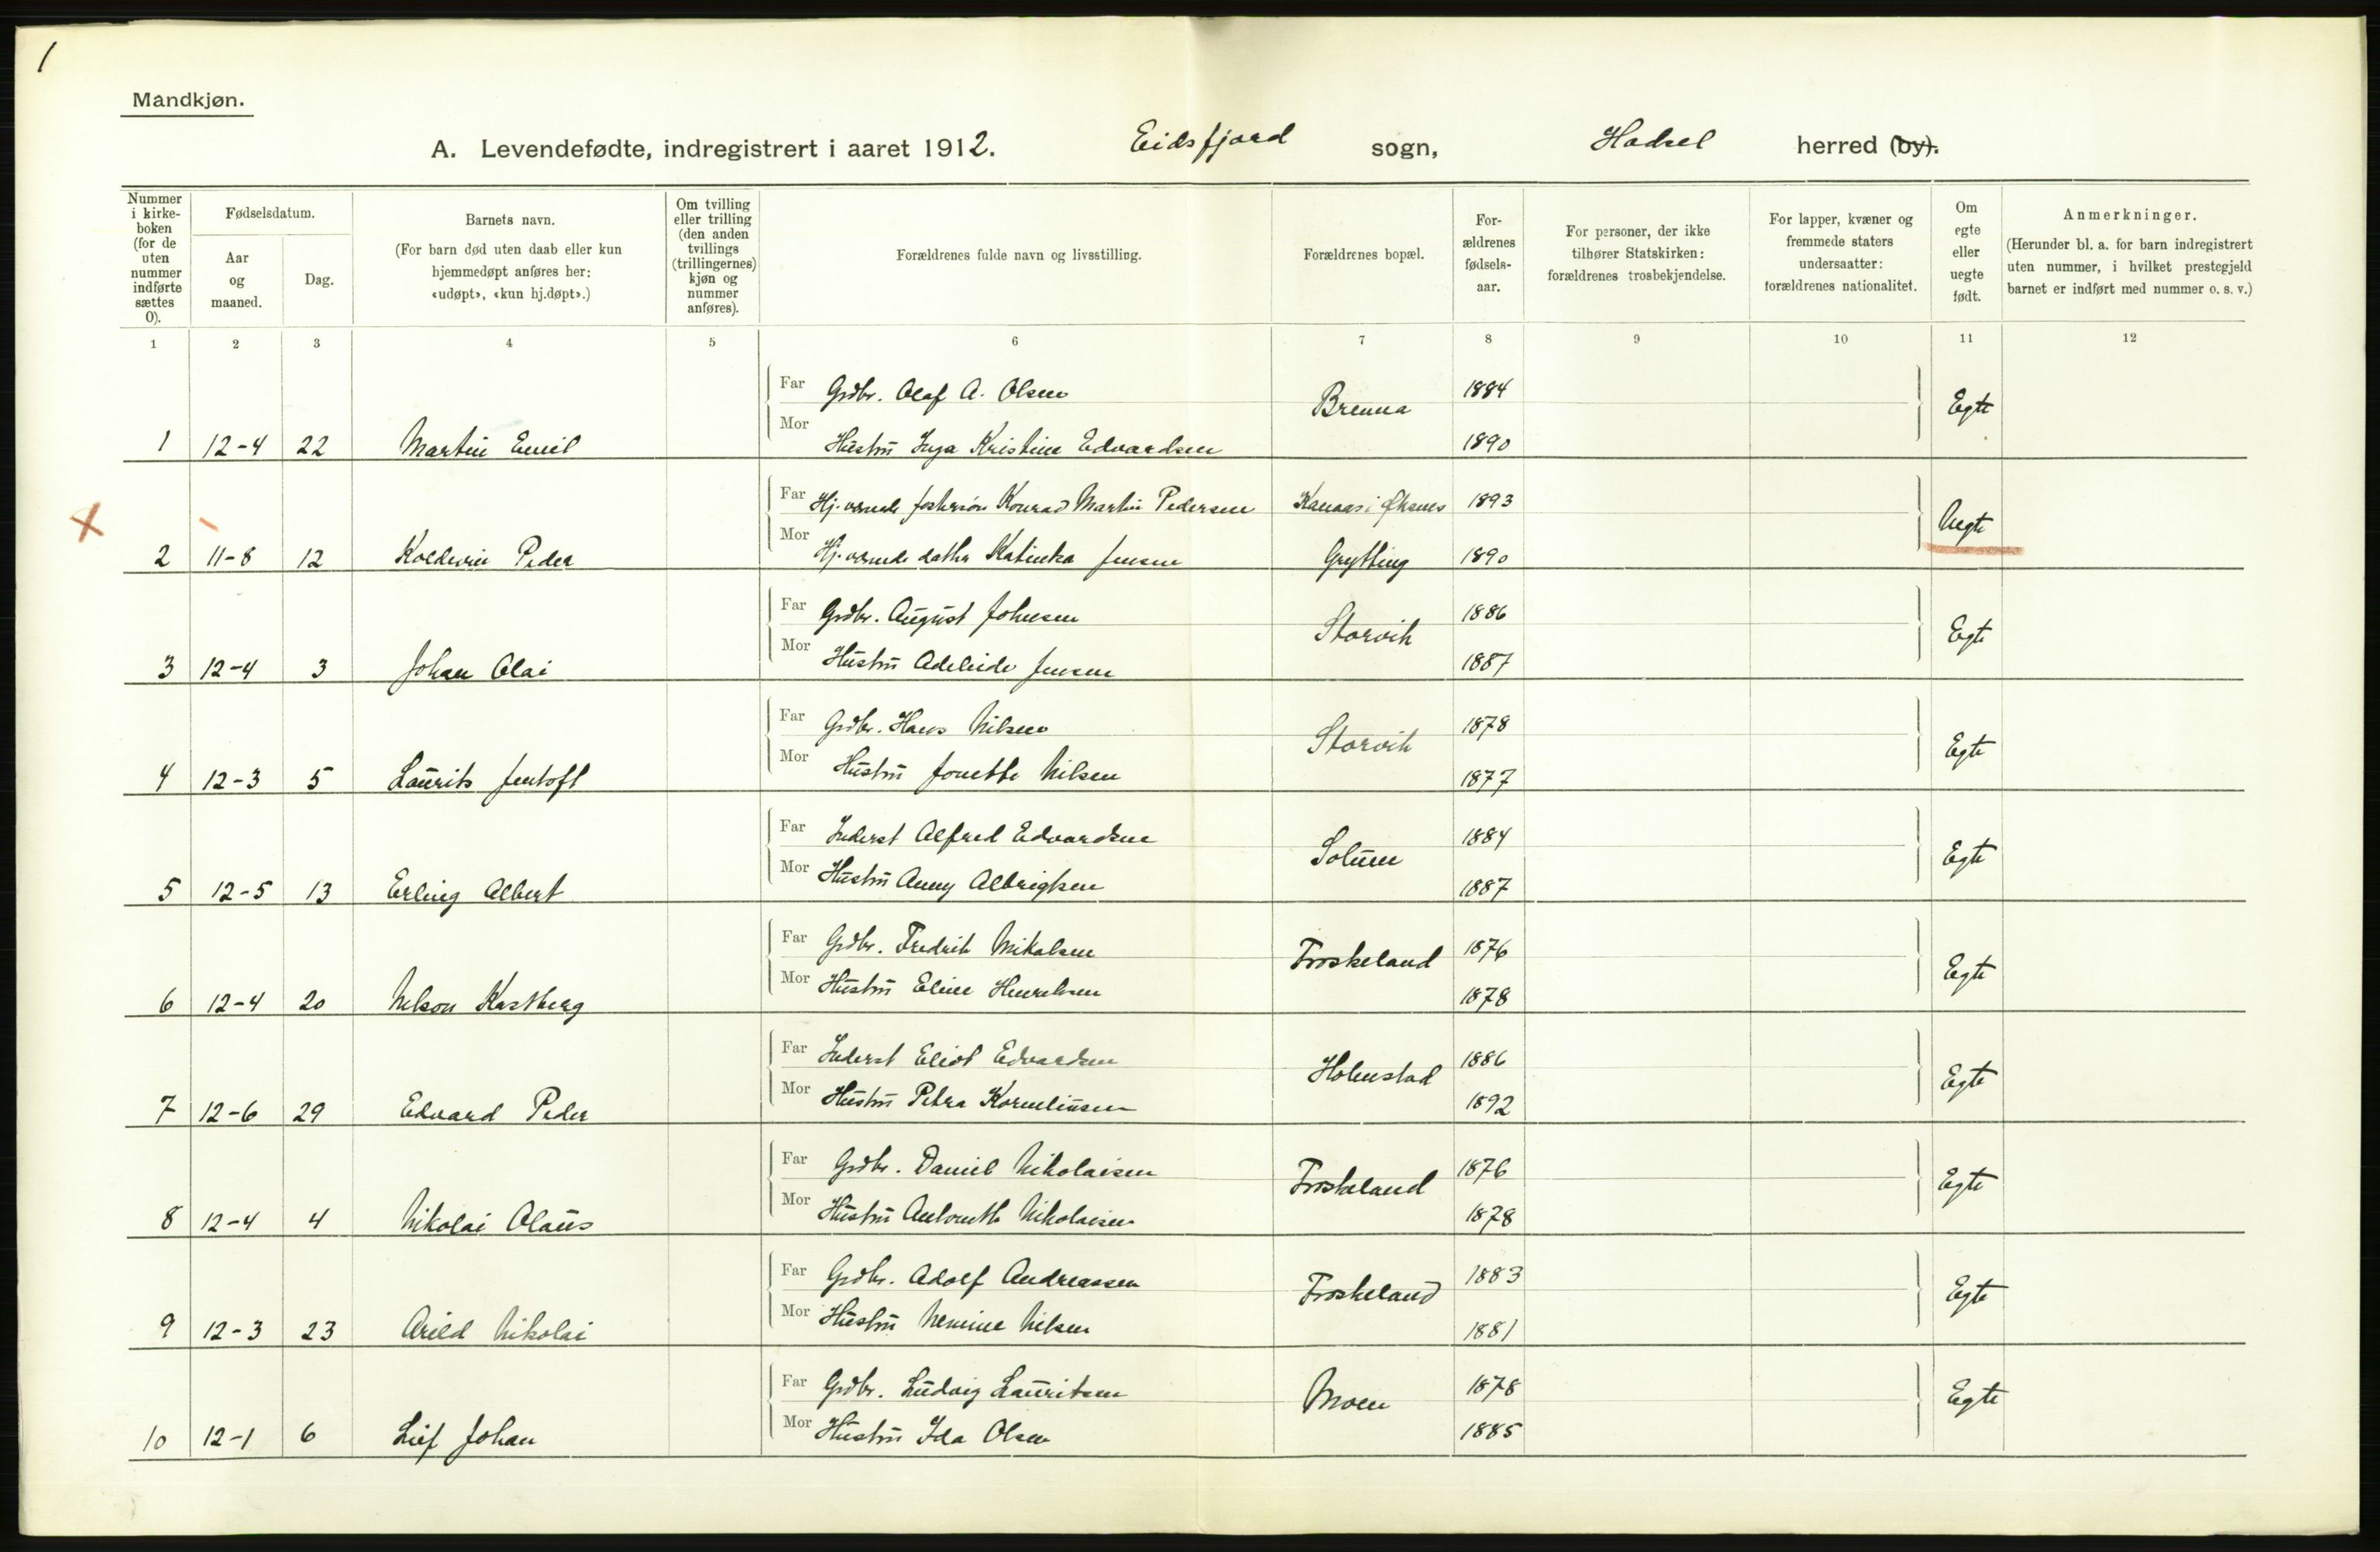 1
Mandkjøn.
A. Levendefødte, indregistrert i aaret 1912. Eidsfjord sogn, Hadsel herred (by).
Nummer i kirke-boken (for de uten nummer indførte sættes 0).
Fødselsdatum.
Aar og maaned.
Dag.
Barnets navn.
(For barn død uten daab eller kun hjemmedøpt anføres her: «udøpt», «kun hj.døpt».)
Om tvilling eller trilling (den anden tvillings (trillingernes) kjøn og nummer anføres).
Forældrenes fulde navn og livsstilling.
Forældrenes bopæl.
For-ældrenes fødsels-aar.
For personer, der ikke tilhører Statskirken: forældrenes trosbekjendelse.
For lapper, kvæner og fremmede staters undersaatter: forældrenes nationalitet.
Om egte eller uegte født.
Anmerkninger.
(Herunder bl. a. for barn indregistrert uten nummer, i hvilket prestegjeld barnet er indført med nummer o. s. v.)
1 2 3 4 5 6 7 8 9 10 11 12
Far Grdbr. Olaf A. Olsen Brenna 1884 Egte
1 12-4 22 Martin Emil Mor Hustru Inga Kristine Edvardsen 1890
X Far Hj. værende fostersøn Konrad Martin Pedersen Kanaas i Øksnes 1893 Uegte
2 11-8 12 Koldevin Peder Mor Hj. værende datter Katinka Jensen Grytting 1890
Far Grdbr. August Johnsen Storvik 1886 Egte
3 12-4 3 Johan Olai Mor Hustru Adeleide Jensen 1887
Far Grdbr. Hans Nilsen Storvik 1878 Egte
4 12-3 5 Laurits Jentoft Mor Hustru Jonette Nilsen 1877
Far Inderst Alfred Edvardsen Solum 1884 Egte
5 12-5 13 Erling Albert Mor Hustru Anny Albrigtsen 1887
Far Grdbr. Fredrik Nikolsen Froskeland 1876 Egte
6 12-4 20 Nelson Kastberg Mor Hustru Eline Henriksen 1878
Far Inderst Eliot Edvardsen Holmstad 1886 Egte
7 12-6 29 Edvard Peder Mor Hustru Petra Korneliusen 1892
Far Grdbr. Daniel Nikolaisen Froskeland 1876 Egte
8 12-4 4 Nikolai Olaus Mor Hustru Antonette Nikolaisen 1878
Far Grdbr. Adolf Andreassen Froskeland 1883 Egte
9 12-3 23 Arild Nikolai Mor Hustru Nenine Nilsen 1881
Far Grdbr. Ludvig Lauritsen Moen 1878 Egte
10 12-1 6 Leif Johan Mor Hustru Ida Olsen 1885